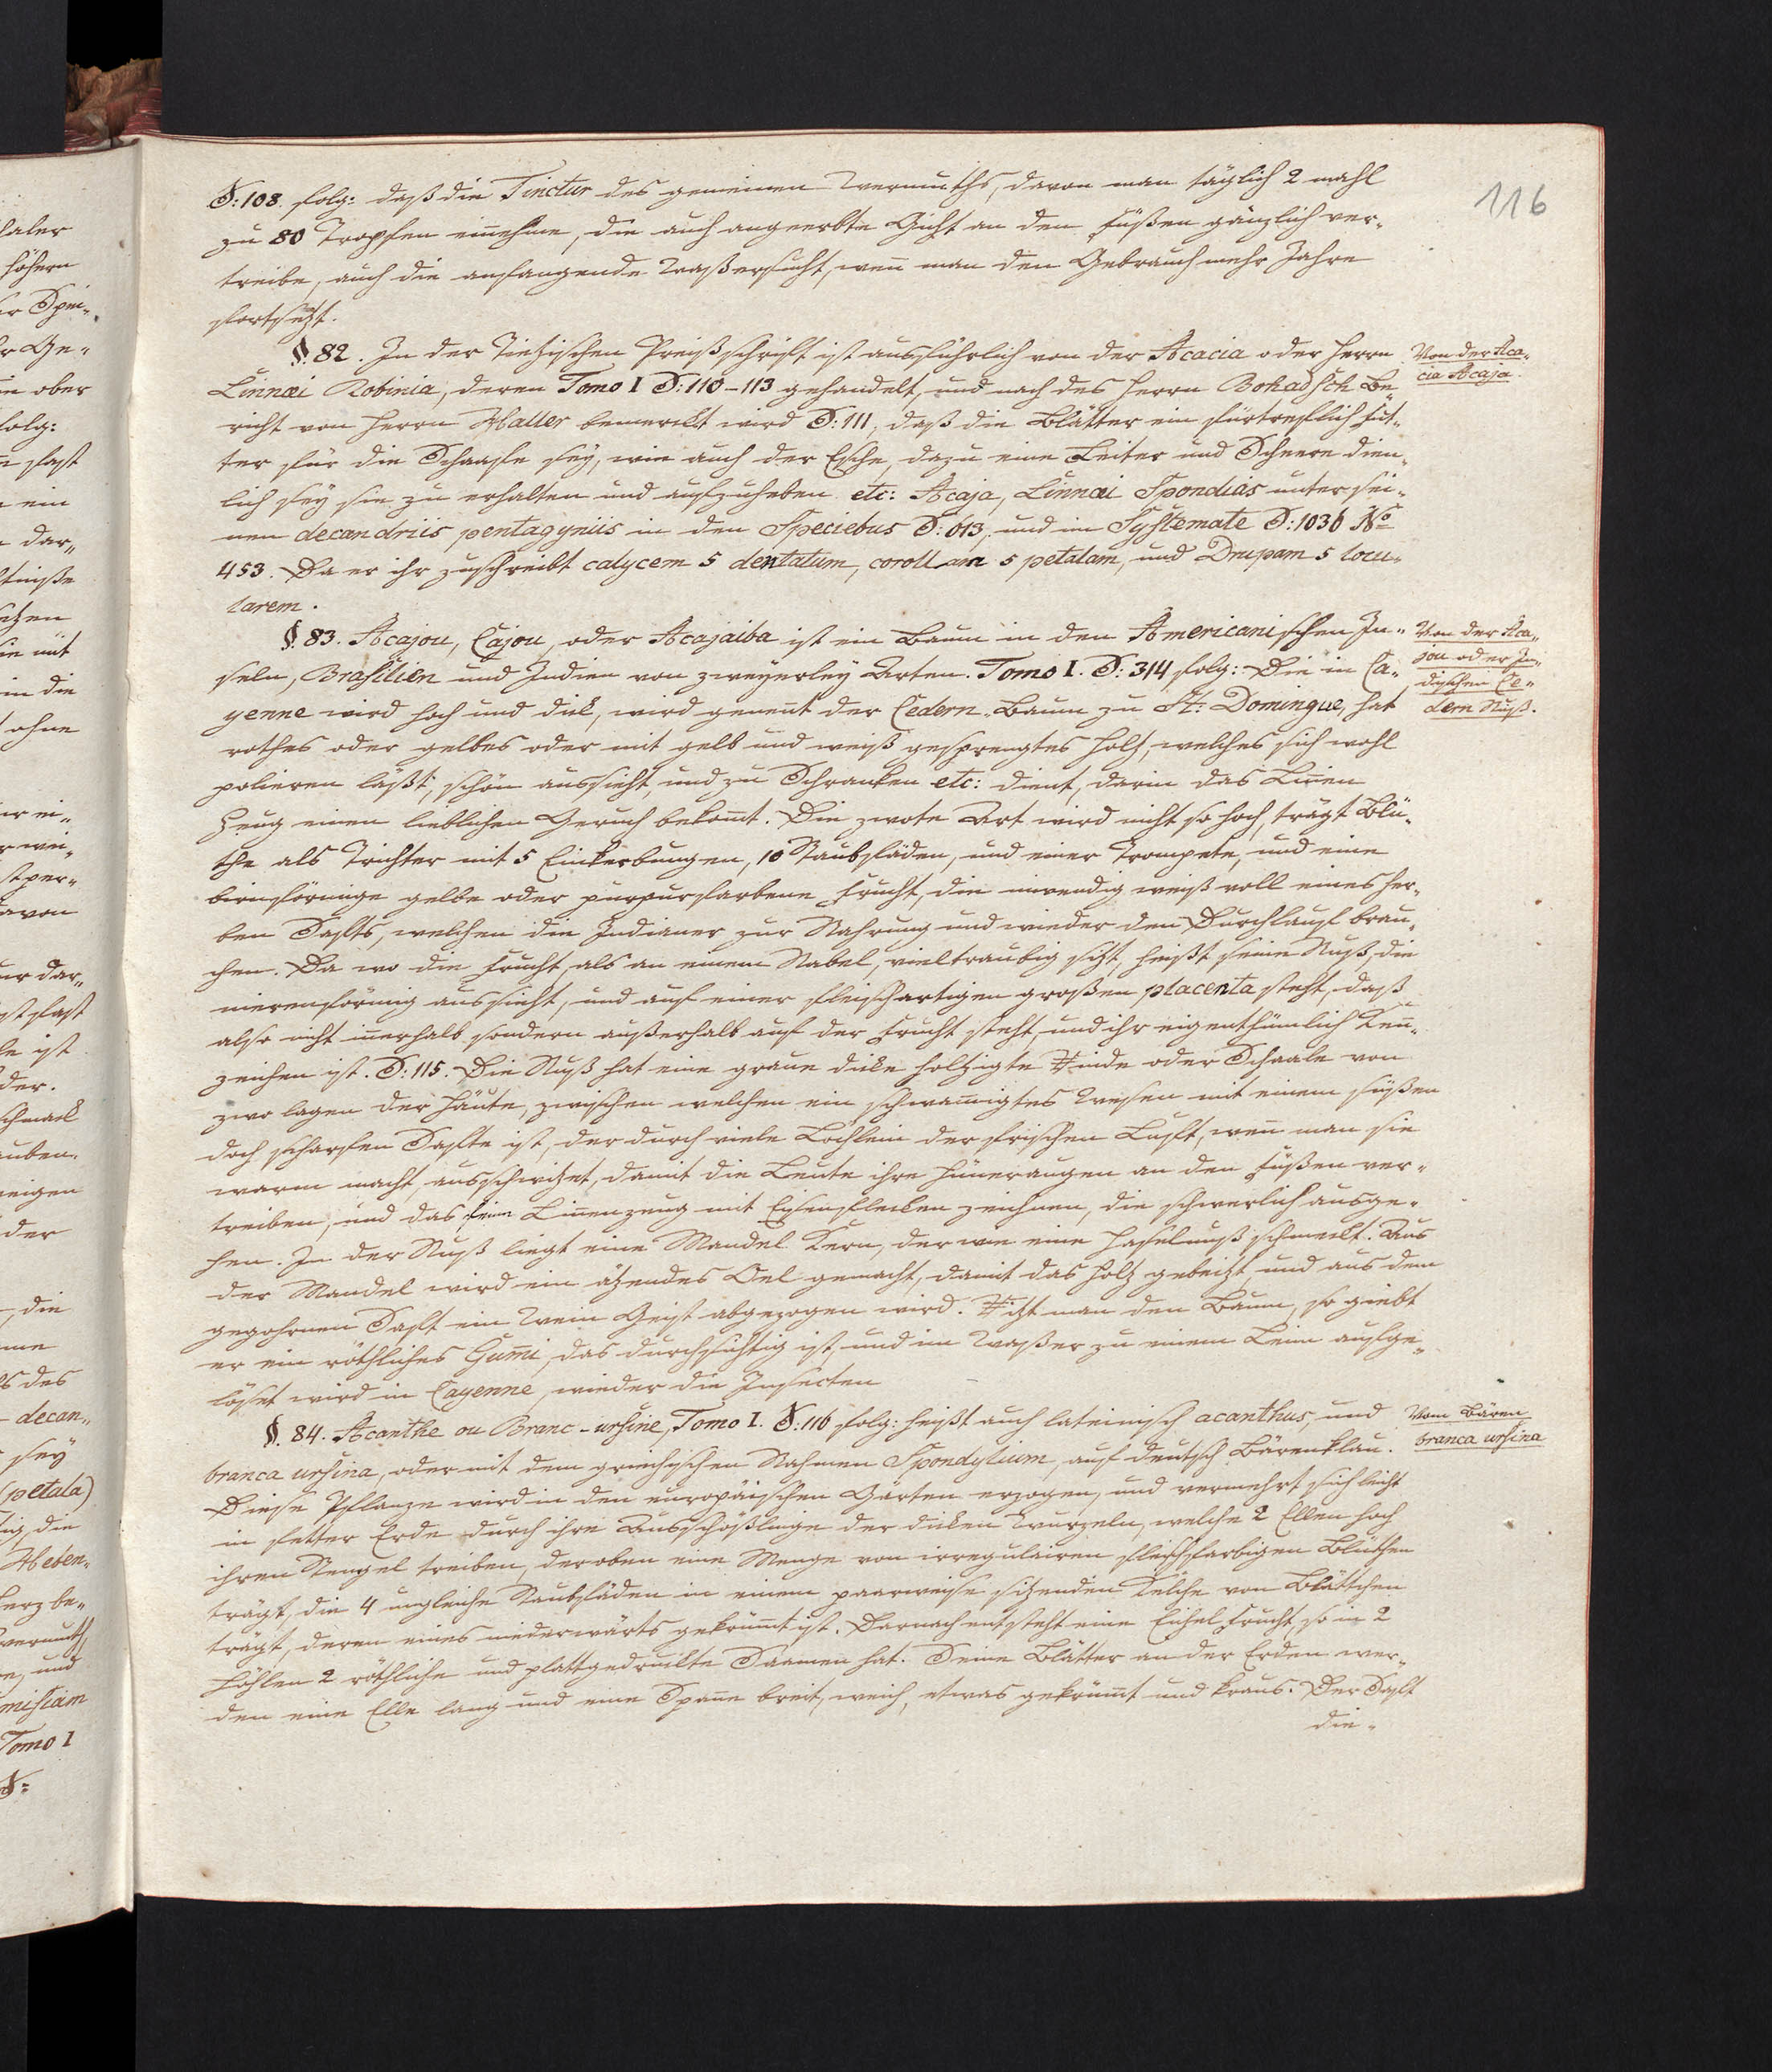 116
S: 108. folg: daß die Tinctur des gemeinen Wermuths, davon man täglich 2 mahl
zu 80 Tropfen einehme, die auch angeerbte Gicht an den Füßen gänzlich ver-
treibe, auch die anfangende Waßersucht, wen man den Gebrauch mehr Jahre
fortsetzt.
§. 82. In der Tietzischen Preißschrift ist ausführlich von der Acacia oder Herrn
Linnæi Robinia, deren Tomo I S: 110–113 gehandelt, und nach des Herrn Bohadsch Be-
richt von Herrn Haller bemerckt wird S: 111, daß die Blätter ein fürtreflich Fut-
ter für die Schaafe sey, wie auch der Esche, dazu eine Leiter und Scheere dien-
lich sey sie zu erhalten und aufzuheben etc: Acaja, Linnæi Spondias unter sei-
nen decandriis pentagyniis in den Speciebus S: 613, und im Systemate S: 1036 No
453. Da er ihr zuschreibt calycem 5 dentatum, corollam 5 petalam, und Drupam 5 locu-
larem.
Von der Aca-
cia Acaja.
§. 83. Acajou, Cajou, oder Acajaiba ist ein Baum in den Americanischen In-
seln, Brasilien und Indien von zweyerley Arten. Tomo I. S: 314 folg: Die in Ca-
yenne wird hoch und dick, wird genent der Cedern-Baum zu St: Domingue, hat
rothes oder gelbes oder mit gelb und weiß gesprengtes Holz, welches sich wohl
polieren läßt, schön aussieht, und zu Schranken etc: dient, darin das Linen
Zeug einen lieblichen Geruch bekomt. Die zwote Art wird nicht so hoch, trägt Blü-
the als Trichter mit 5 Einkerbungen, 10 Staubfäden, und einer Trompete, und eine
birnförmige gelbe oder purpurfarbene Frucht, die inwendig weiß voll eines her-
ben Safts, welchen die Indianer zur Nahrung und wieder den Durchlauf brau-
chen. Da wo die Frucht, als an einem Nabel, vieltraubig sitzt, heißt seine Nuß, die
nierenförmig aussieht, und auf einer fleischartigen großen placenta steht, daß
also nicht inerhalb sondern außerhalb auf der Frucht steht, und ihr eigenthümlich Ken-
zeichen ist. S: 115. Die Nuß hat eine graue dicke holzigte Rinde oder Schaale von
zwo lagen der Häute, zwischen welchen ein schwamigtes Wesen mit einem süßen
doch scharfen Safte ist, der durch viele Löchlein der frischen Luft, wen man sie
warm macht, ausschwitzet, damit die Leute ihre Hüneraugen an den Füßen ver-
treiben, und das feine Linenzeug mit Eisenflecken zeichnen, die schwerlich ausge-
hen. In der Nuß liegt eine Mandel Kern, der wie eine Haselnuß schmeckt. Aus
der Mandel wird ein ätzendes Oel gemacht, damit das Holz gebeitzt, und aus dem
gegohrnen Saft ein Wein Geist abgezogen wird. Ritzt man den Baum, so giebt
er ein röthliches Gumi, das durchsichtig ist, und im Waßer zu einem Leim aufge-
löset wird in Cayenne, wieder die Insecten
Von der Aca-
jou oder In-
dischen Ce-
dern Nuß.
§. 84. Acanthe ou Branc-ursine, Tomo I. S: 116 folg: heißt auch lateinisch acanthus, und
branca ursina, oder mit dem griechischen Nahmen Spondylium, auf deutsch Bärenklau.
Diese Pflanze wird in den europäischen Gärten erzogen, und vermehrt sich leicht
in fetter Erde durch ihre Ausschößlinge der dicken Wurzeln, welche 2 Ellen hoch
ihren Stengel treiben, der oben eine Menge von irregulairen fleischfarbigen Blüthen
trägt, die 4 ungleiche Staubfäden in einem paarweise sitzenden Kelche von Blättchen
trägt, deren eines niederwärts gekrümt ist. Darnach entsteht eine Eichel Frucht, so in 2
Höhlen 2 röthliche und plattgedruckte Saamen hat. Seine Blätter an der Erden wer-
den eine Elle lang und eine Spane breit, weich, etwas gekrümt und kraus. Der Saft
die-
Vom Bären
branca ursina